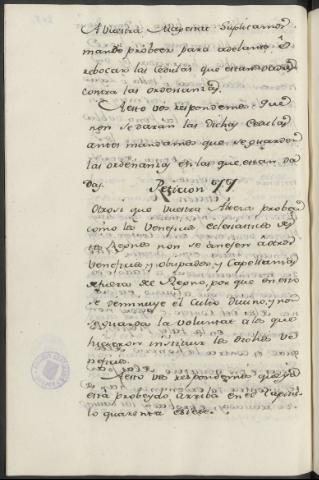 A vuestra Magestat Suplicamos
mande probeer para adelante é
rebocar las cedulas que estan dadas
contra las ordenanzas.
A esto vos respondemos: que
non se daran las dichas Cedulas
antes mandamos que se guarden
las ordenanzas en las que estan da
das.
Peticion 77
Otrosi que vuestra Alteza probea
como los veneficios eclesiasticos de
Reynos non se anejen a otros
veneficios, y obispados, y Capellanias
de fuera del Reyno, por que en esto
se deminuye el Culto Divino, y no
se guarda la voluntat a los que
hicieron instituir los dichos ve
neficios.
A esto vos respondemos que ya
está probeydo arriba en el Capitu-
lo quarenta e siete.